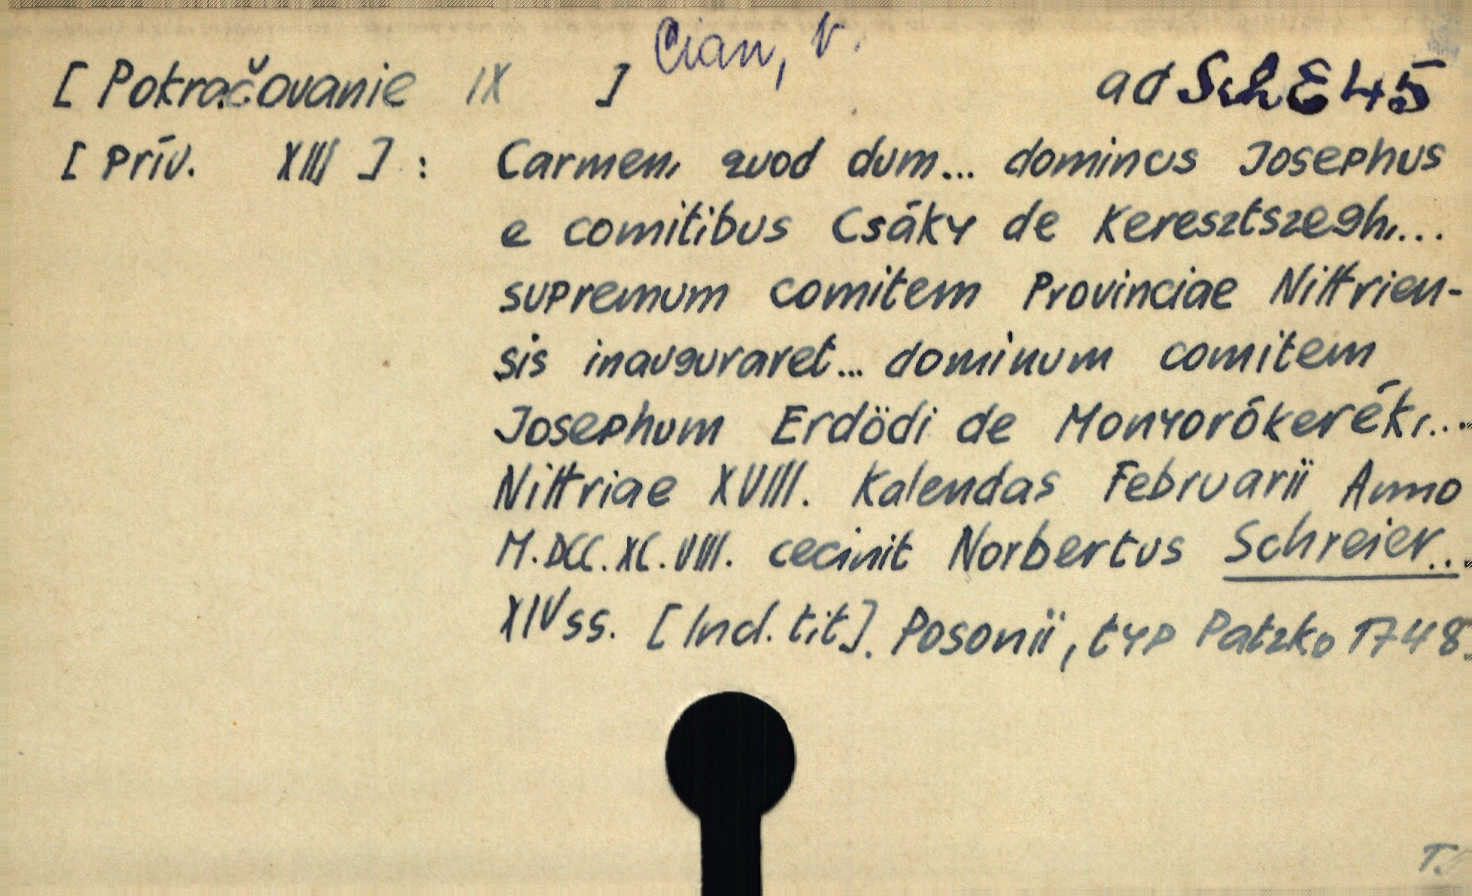 Cian, V.
[ Pokračovanie IX ] ad Sch E 45
[ Prív. XIII ] : Carmen, quod dum... dominus Josephus
e comitibus Csáky de Keresztszegh,...
supremum comitem Provinciae Nittrien-
sis inauguraret... dominum comitem
Josephum Erdödi de Monyorókerék,...
Nittriae XVIII. Kalendas Februarii Anno
M.DCC.XC.VIII. cecinit Norbertus Schreier...
XIV ss. [Ind. tit]. Posonii, typ Patzko 1748.
T.